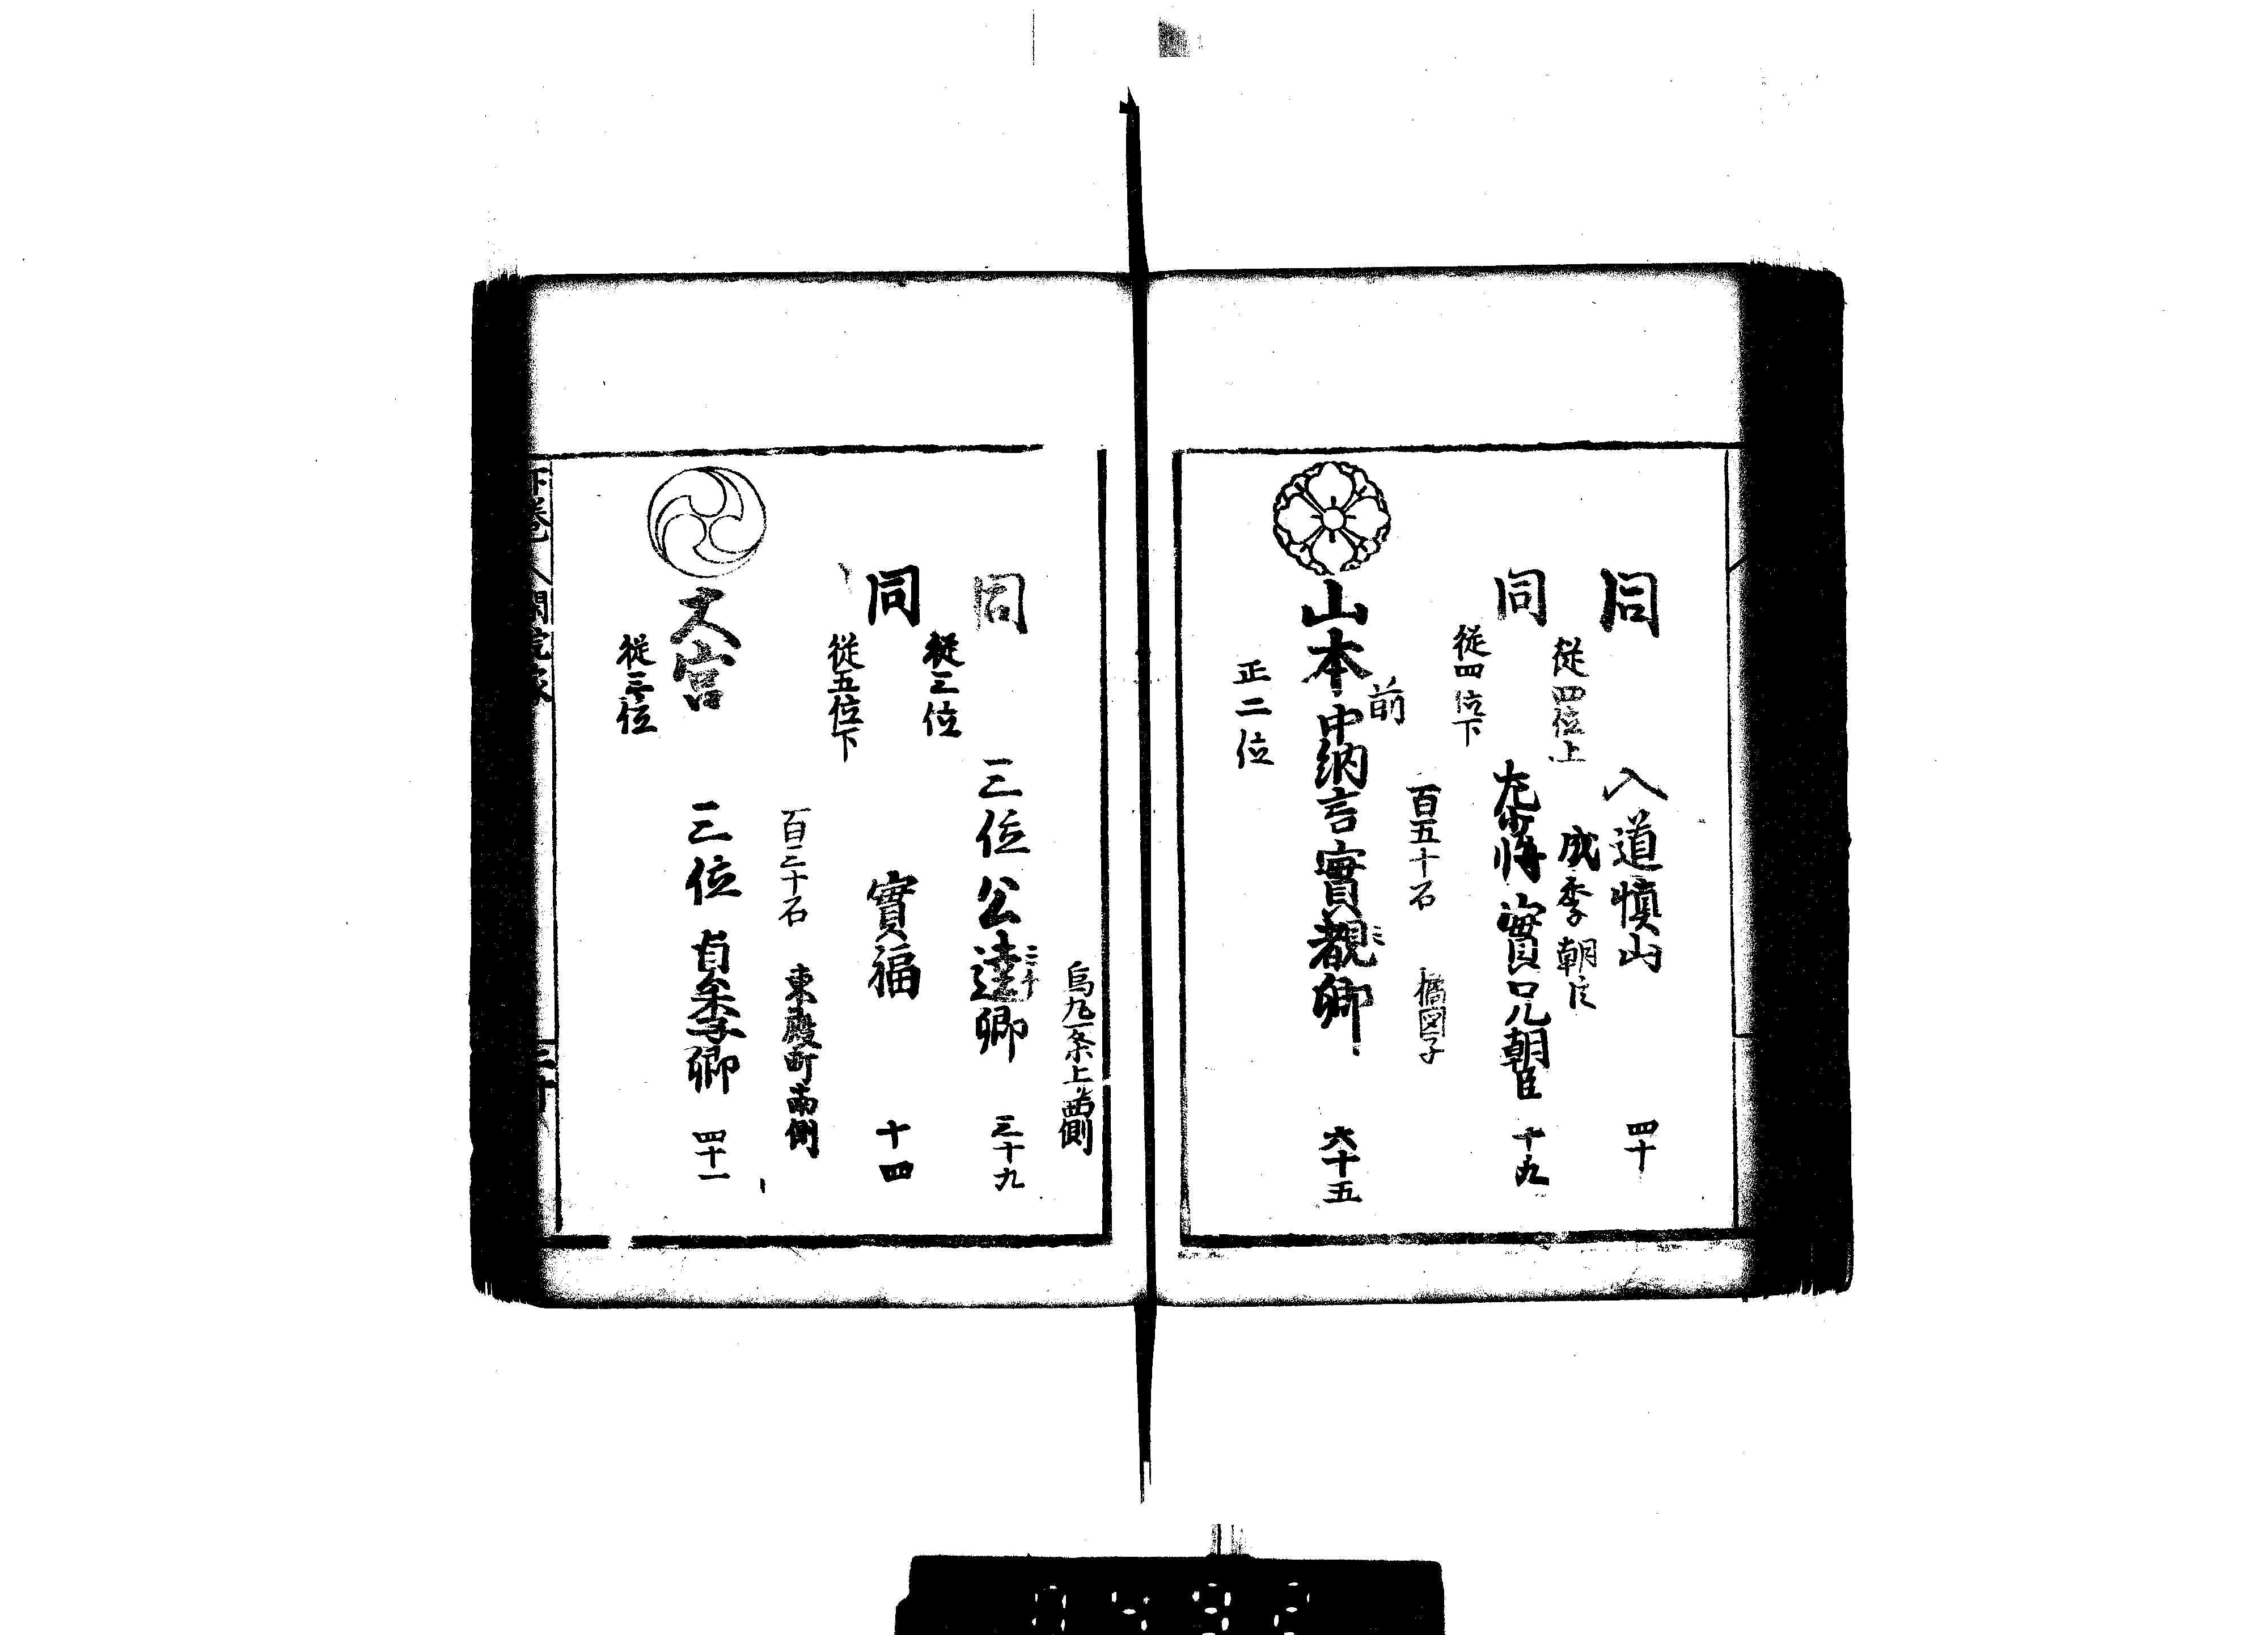 同 入道慎山 四十
従四位上 成季朝臣
同 左少将實兄朝臣 十九
従四位下
百五十石 橘図子
前
山本中納言實觀卿 六十五
ミ
正二位
烏丸一条上ル西側
同 三位公達卿 三十九
従三位
同 實福 十四
従五位下
百三十石 東殿町南側
大宮 三位貞季卿 四十一
従三位
下巻 閑院家 三十